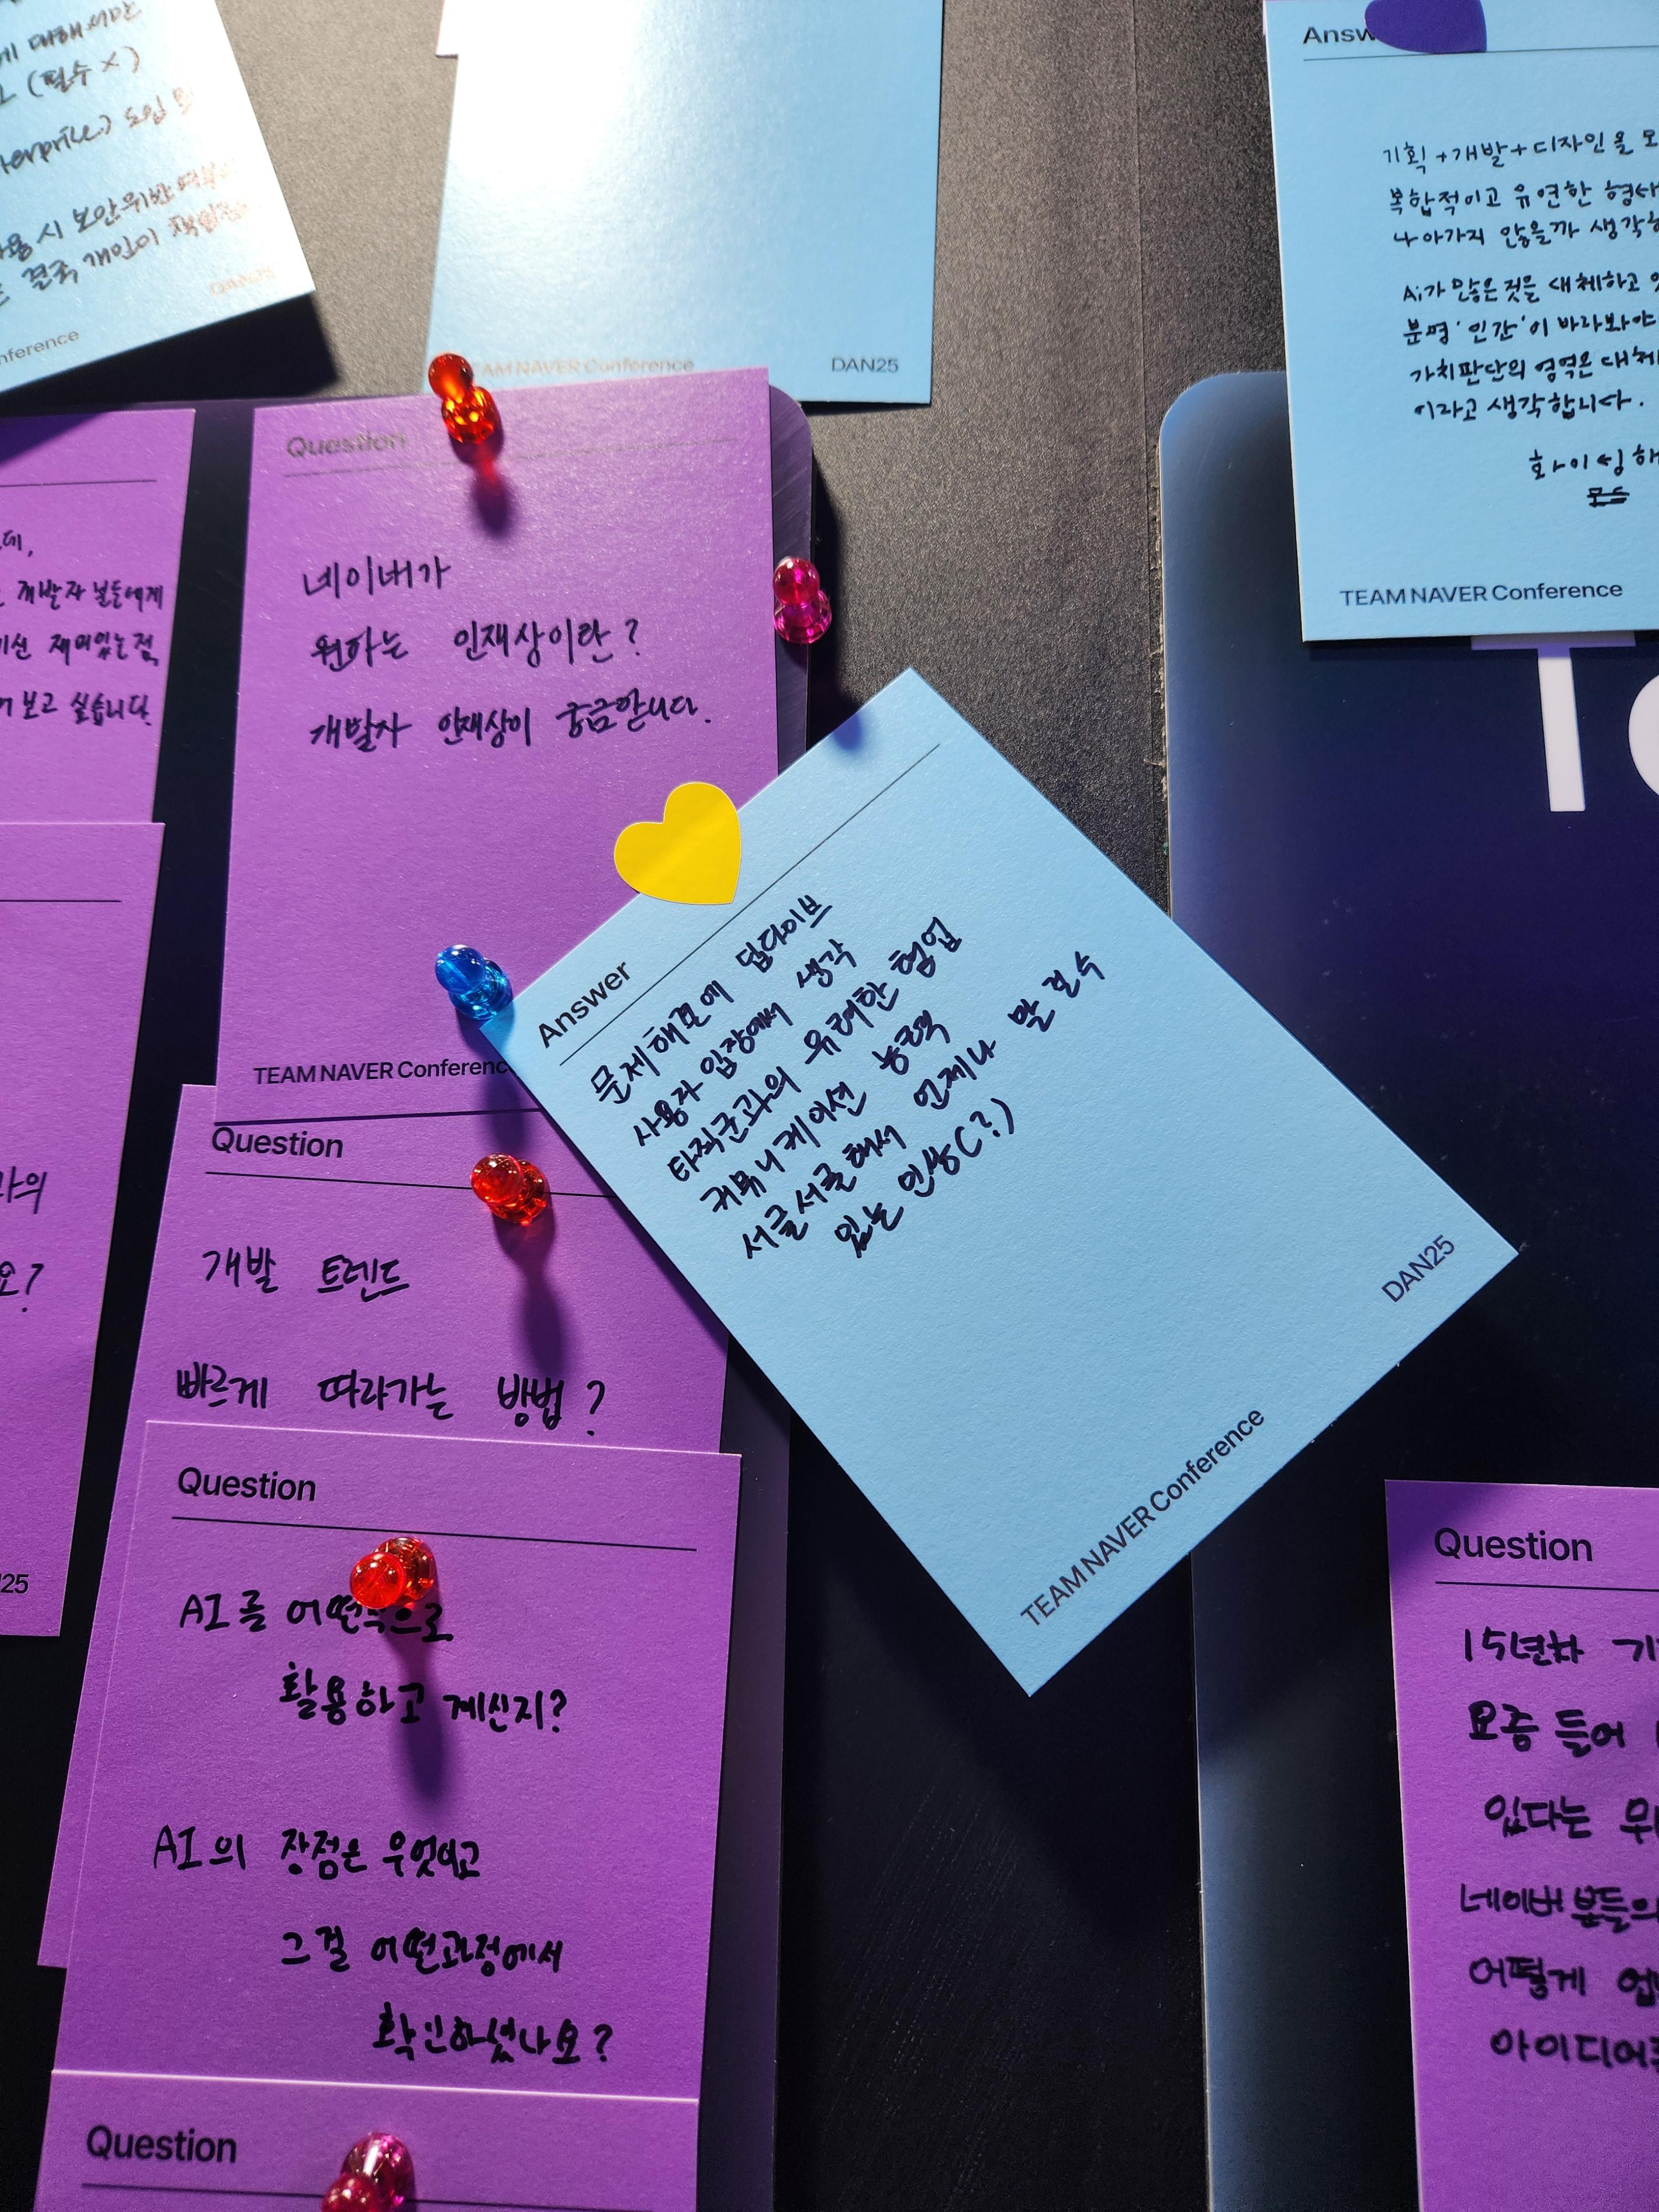 게 대해서만
(필수 X)
도입
용 시 보안위반 여부
결국 개인이
DAN25
nference
TEAM NAVER Conference
DAN25
Answ
기획+개발+디자인을 모
복합적이고 유연한 형태
나아가지 않을까 생각
Ai가 많은것을 대체하고
분명 '인간'이 바라봐야
가치판단의 영역은 대체
이라고 생각합니다.
화이팅 해
TEAM NAVER Conference
T
데,
개발자 분들에게
재미있는점
보고 싶습니다.
Question
네이버가
원하는 인재상이란?
개발자 인재상이 궁금합니다.
TEAM NAVER Conferenc
Answer
문제해결에 딥다이브
사용자 입장에서 생각
타직군과의 유려한 협업
커뮤니케이션 능력
서글서글해서 언제나 말 모수
있는 인상(?)
TEAM NAVER Conference
DAN25
과의
요?
25
Question
개발 트렌드
빠르게 따라가는 방법?
Question
AI를 어떤식으로
활용하고 계신지?
AI의 장점은 무엇이고
그걸 어떤과정에서
확인하셨나요?
Question
Question
15년차
요즘 들어
있다는
네이버 분들의
어떻게
아이디어